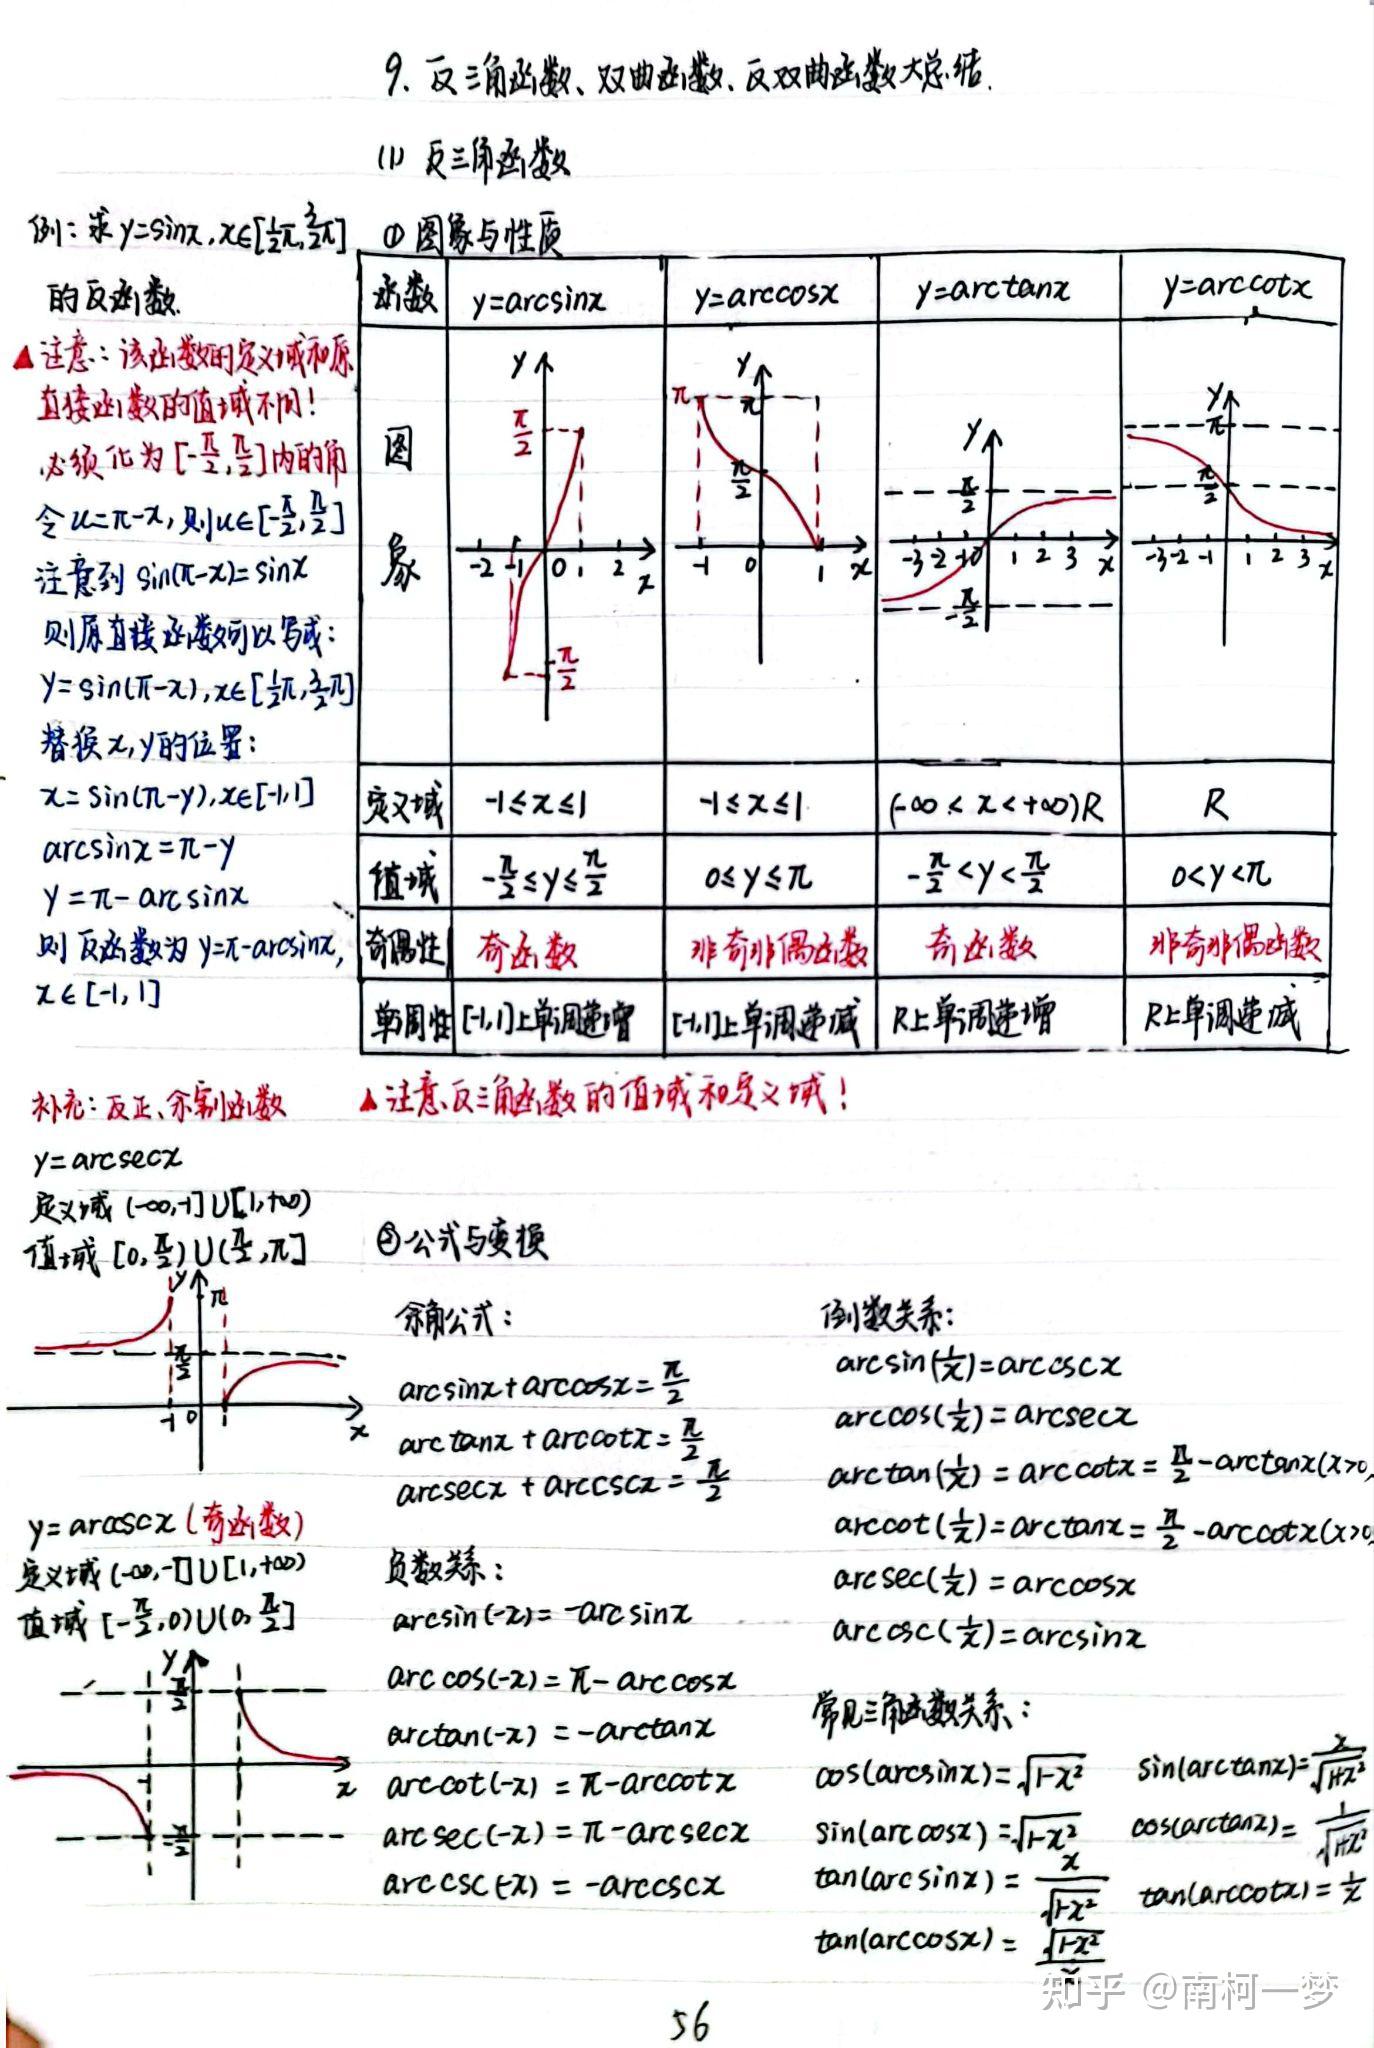 9. 反三角函数、双曲函数、反双曲函数大总结.
(1) 反三角函数
例: 求y=sinx, x∈[1/2π, 3/2π]
的反函数.
▲注意: 该函数的定义域和原
直接函数的值域不同!
必须化为[-π/2, π/2]内的角
令u=π-x, 则u∈[-π/2, π/2]
注意到 sin(π-x)=sinx
则原直接函数可以写成:
y=sin(π-x), x∈[1/2π, 3/2π]
替换x,y的位置:
x=sin(π-y), x∈[-1,1]
arcsinx=π-y
y=π-arcsinx
则反函数为y=π-arcsinx,
x∈[-1,1]
① 图象与性质
函数 y=arcsinx y=arccosx y=arctanx y=arccotx
图象
y π/2 -2 -1 0 1 2 x -π/2
y π π π/2 -1 0 1 x
y π/2 -3 -2 -1 0 1 2 3 x -π/2
y π π/2 -3 -2 -1 1 2 3 x
定义域 -1≤x≤1 -1≤x≤1 (-∞<x<+∞)R R
值域 -π/2≤y≤π/2 0≤y≤π -π/2<y<π/2 0<y<π
奇偶性 奇函数 非奇非偶函数 奇函数 非奇非偶函数
单调性 [-1,1]上单调递增 [-1,1]上单调递减 R上单调递增 R上单调递减
▲注意反三角函数的值域和定义域!
补充: 反正、余割函数
y=arcsecx
定义域 (-∞,-1]∪[1,+∞)
值域 [0, π/2)∪(π/2, π]
y π π/2 -1 0 x
y=arccscx (奇函数)
定义域 (-∞,-1]∪[1,+∞)
值域 [-π/2, 0)∪(0, π/2]
y π/2 -1 x -π/2
②公式与变换
余角公式:
arcsinx+arccosx=π/2
arctanx+arccotx=π/2
arcsecx+arccscx=π/2
负数关系:
arcsin(-x)=-arcsinx
arccos(-x)=π-arccosx
arctan(-x)=-arctanx
arccot(-x)=π-arccotx
arcsec(-x)=π-arcsecx
arccsc(-x)=-arccscx
倒数关系:
arcsin(1/x)=arccscx
arccos(1/x)=arcsecx
arctan(1/x)=arccotx=π/2-arctanx(x>0,
arccot(1/x)=arctanx=π/2-arccotx(x>0,
arcsec(1/x)=arccosx
arccsc(1/x)=arcsinx
常见三角函数关系:
cos(arcsinx)=√(1-x²) sin(arctanx)=x/√(1+x²)
sin(arccosx)=√(1-x²) cos(arctanx)=1/√(1+x²)
tan(arcsinx)=x/√(1-x²) tan(arccotx)=1/x
tan(arccosx)=√(1-x²)/x
知乎 @南柯一梦
56